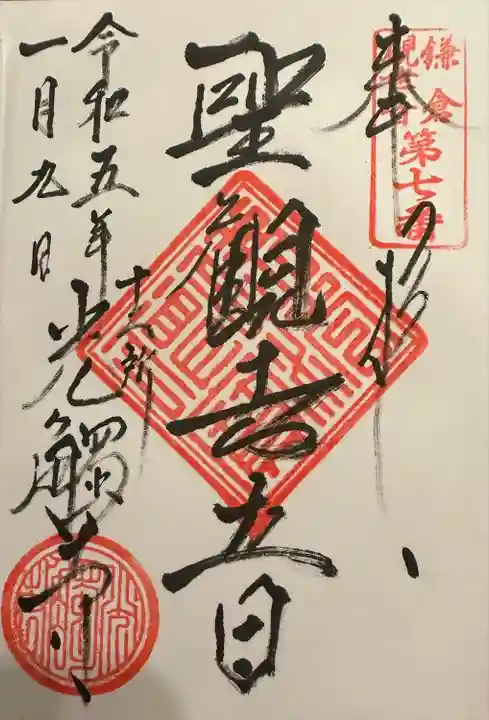 鎌倉
観音
第七番
奉拝
聖觀世音
十二所
光觸寺
令和五年
一月九日